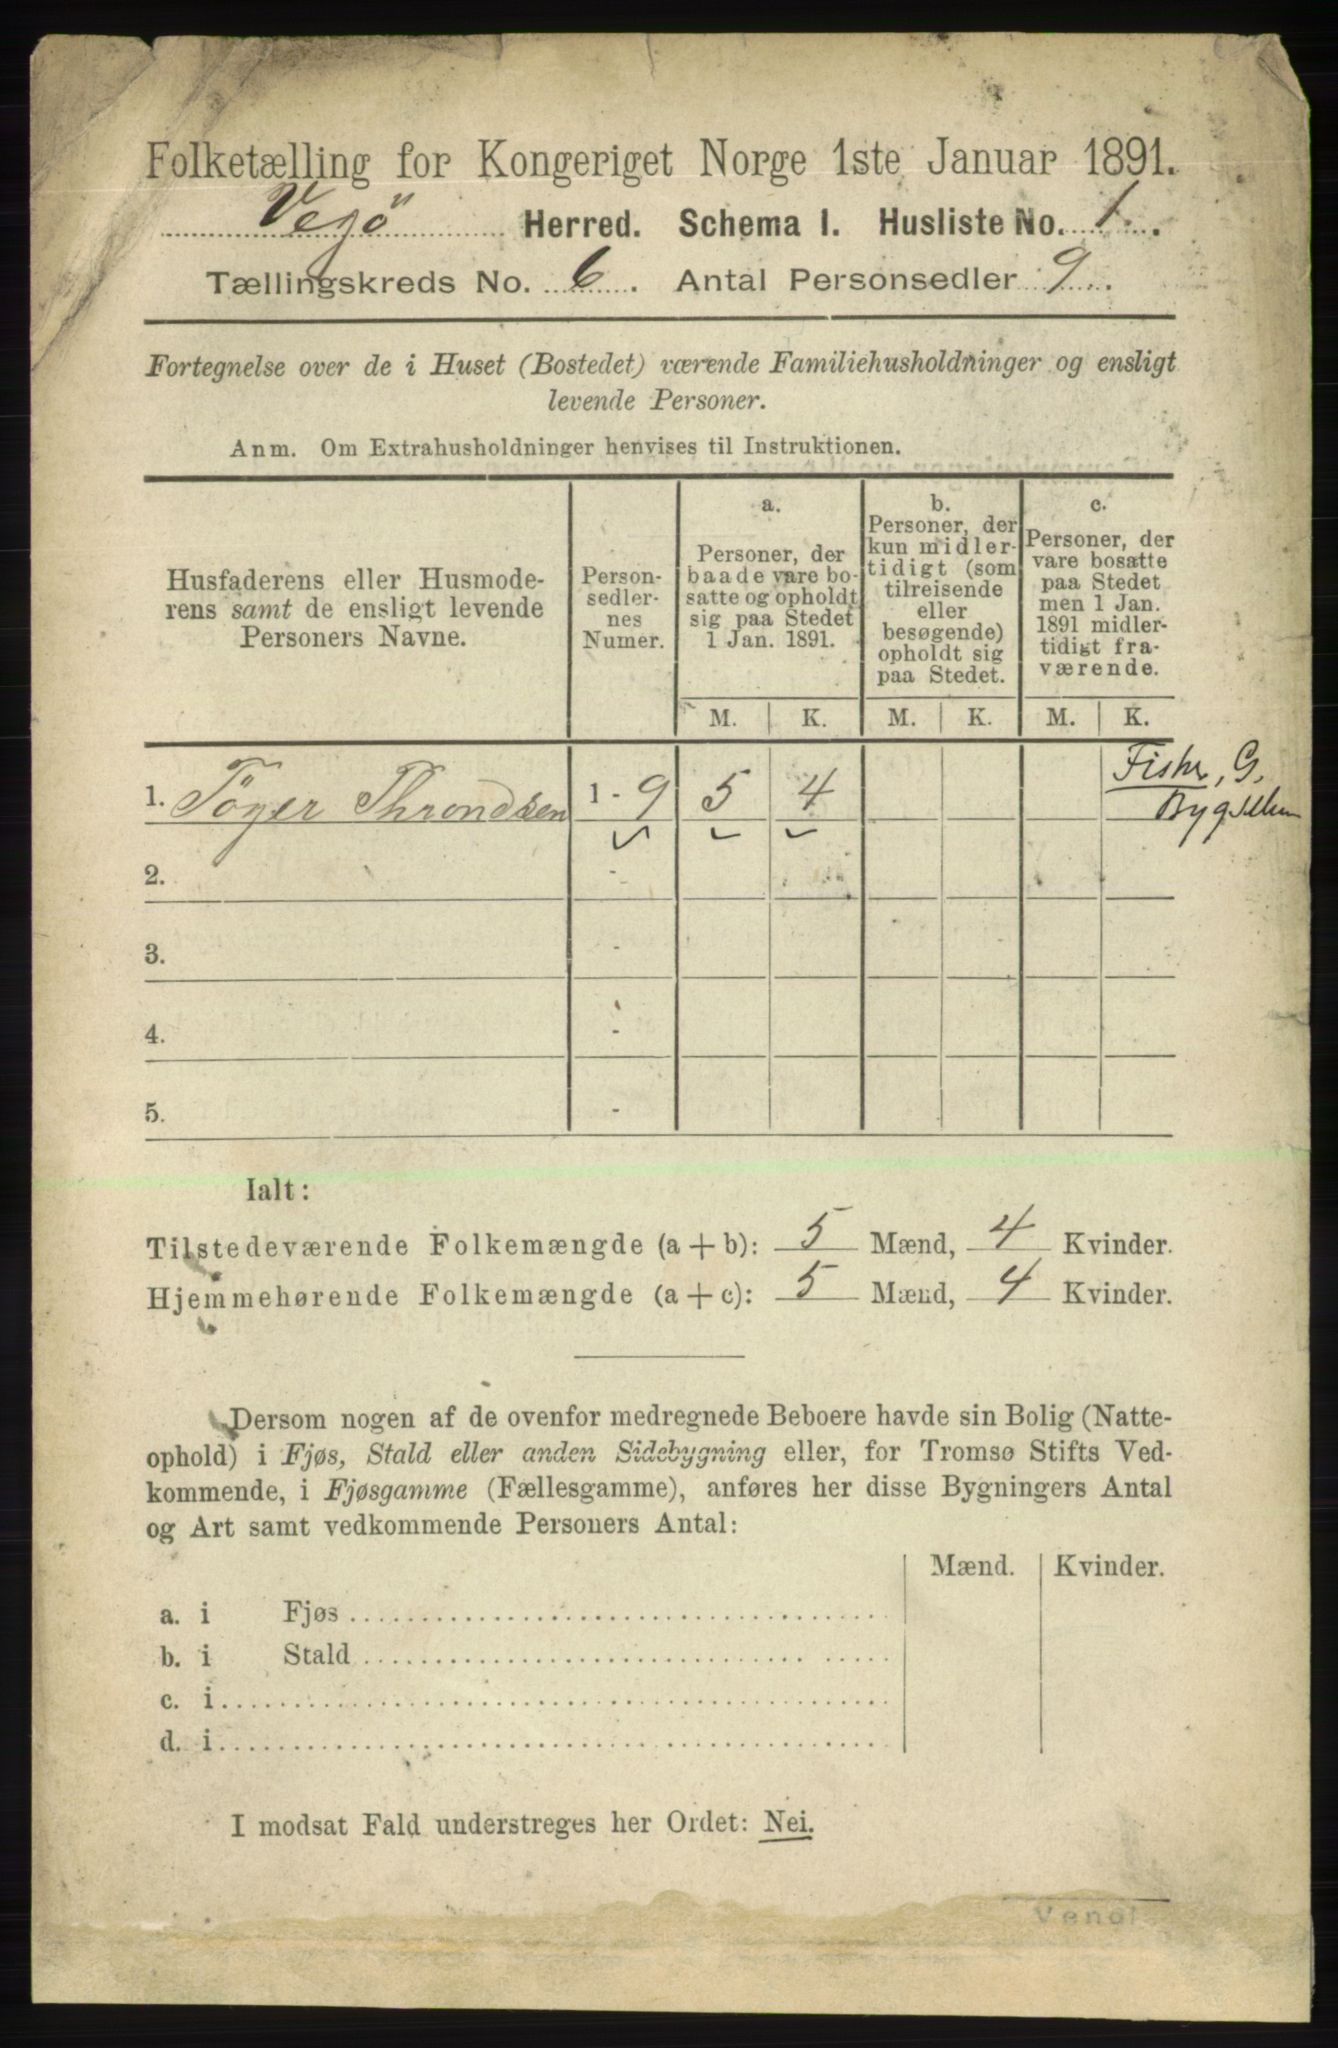 Folketælling for Kongeriget Norge 1ste Januar 1891.
Vejö Herred. Schema I. Husliste No. 1.
Tællingskreds No. 6. Antal Personsedler 9.
Fortegnelse over de i Huset (Bostedet) værende Familiehusholdninger og ensligt
levende Personer.
Anm. Om Extrahusholdninger henvises til Instruktionen.
Husfaderens eller Husmode-
rens samt de ensligt levende
Personers Navne.
Person-
sedler-
nes
Numer.
a.
Personer, der
baade vare bo-
satte og opholdt
sig paa Stedet
1 Jan. 1891.
b.
Personer, der
kun midler-
tidigt (som
tilreisende
eller
besøgende)
opholdt sig
paa Stedet.
c.
Personer, der
vare bosatte
paa Stedet
men 1 Jan.
1891 midler-
tidigt fra-
værende.
M. K. M. K. M. K.
Fisker, G.
1. Töger Throndsen 1 - 9 5 4
2. -
3. -
4. -
5. -
Ialt:
Tilstedeværende Folkemængde (a + b): 5 Mænd, 4 Kvinder.
Hjemmehørende Folkemængde (a + c): 5 Mænd, 4 Kvinder.
Dersom nogen af de ovenfor medregnede Beboere havde sin Bolig (Natte-
ophold) i Fjøs, Stald eller anden Sidebygning eller, for Tromsø Stifts Ved-
kommende, i Fjøsgamme (Fællesgamme), anføres her disse Bygningers Antal
og Art samt vedkommende Personers Antal:
Mænd. Kvinder.
a. i Fjøs
b. i Stald
c. i
d. i
I modsat Fald understreges her Ordet: Nei.